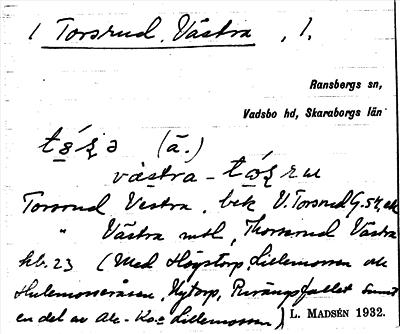 1 Torsrud, Västra, 1.
Ransbergs sn,
Vadsbo hd, Skaraborgs län
(ā.)
västra -
Torsrud Vestra, bek V. Torsrud G. 54, ek
" Västra mtl, Thorsrud Västra
hb. 23 (Med Högstorp, Lillemossen och
Hulemosseråsen, Nytorp, Purängsfallet samt
en del av Ale-Ko= Lillemossen)
L. MADSÉN 1932.